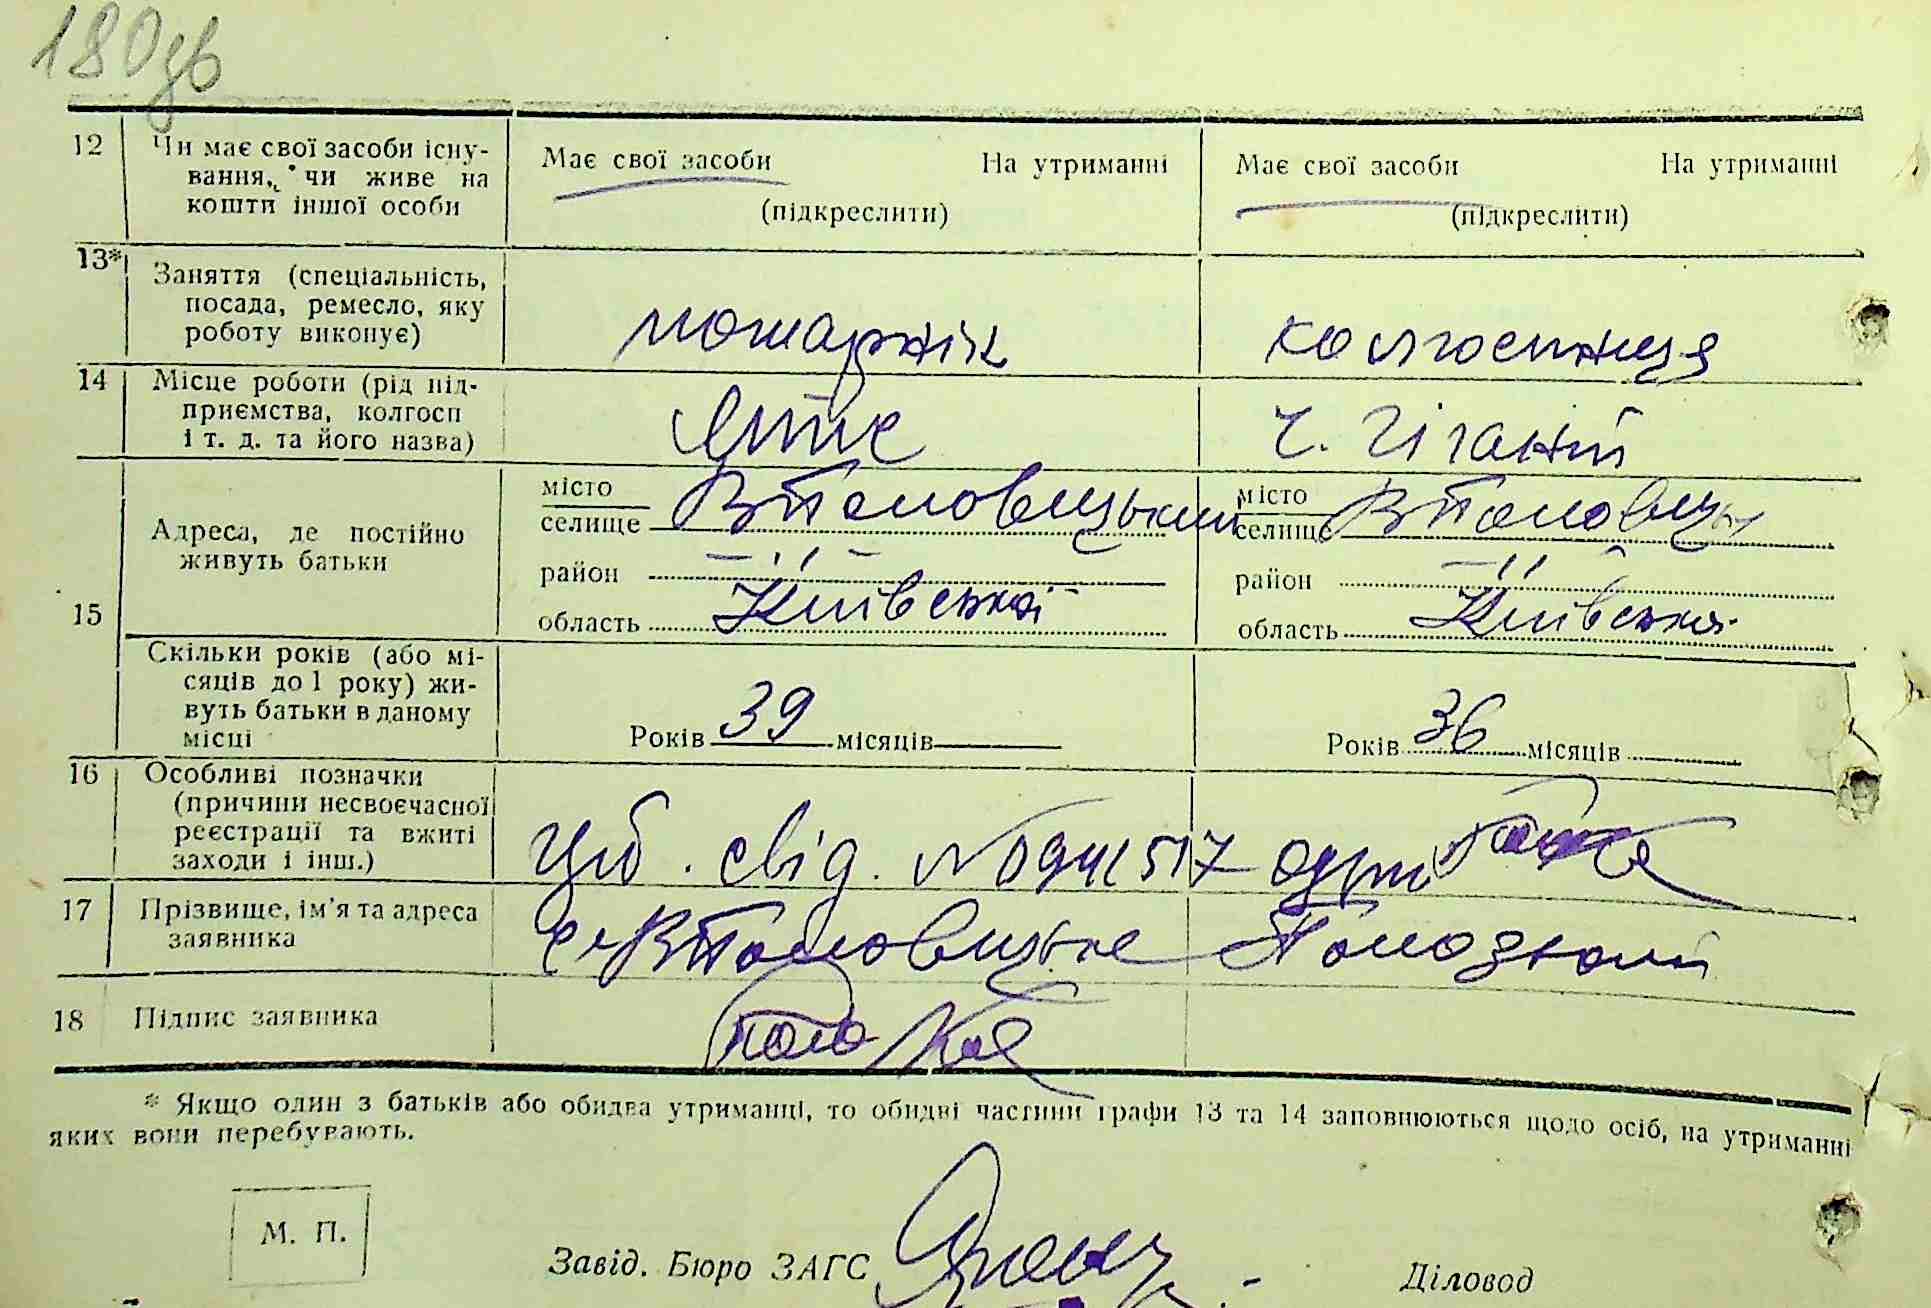 180зв
12 Чи має свої засоби існу-
вання, чи живе на
кошти іншої особи
Має свої засоби На утриманні
(підкреслити)
Має свої засоби На утриманні
(підкреслити)
13* Заняття (спеціальність,
посада, ремесло, яку
роботу виконує)
пожарнік
колгоспниця
14 Місце роботи (рід під-
приємства, колгосп
і т. д. та його назва)
15 Адреса, де постійно
живуть батьки
місто
селище
район — " —
область Київської
місто
селище
район — " —
область Київської
Скільки років (або мі-
сяців до 1 року) жи-
вуть батьки в даному
місці
Років 39 місяців
Років 36 місяців
16 Особливі позначки
(причини несвоєчасної
реєстрації та вжиті
заходи і інш.)
свід. №
17 Прізвище, ім'я та адреса
заявника
18 Підпис заявника
* Якщо один з батьків або обидва утриманці, то обидві частини графи 13 та 14 заповнюються щодо осіб, на утриманні
яких вони перебувають.
М. П.
Завід. Бюро ЗАГС
Діловод